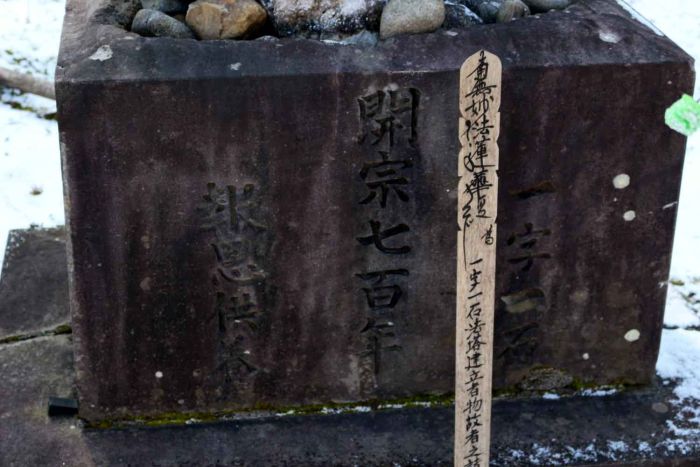 一字一石
開宗七百年
報恩供養
南無妙法蓮華経 為 一字一石法塔建立者物故者之